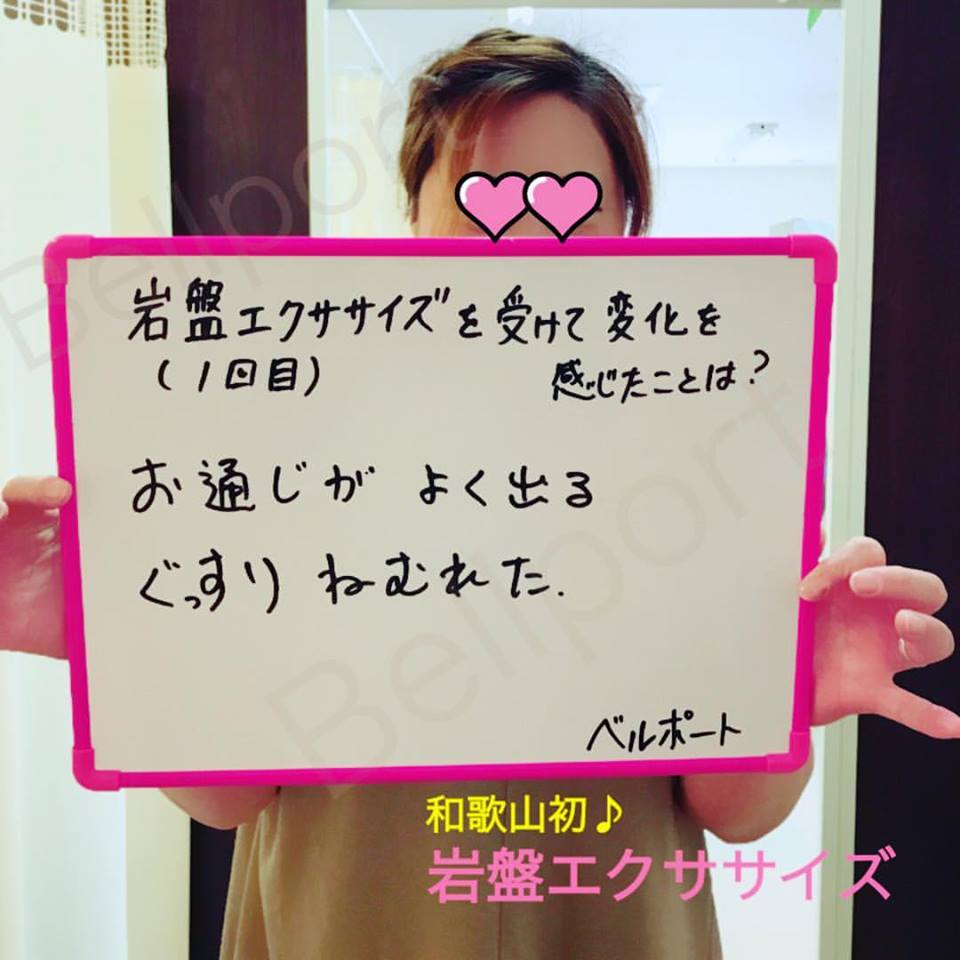 岩盤エクササイズを受けて変化を
(1回目) 感じたことは?
お通じが よく出る
ぐっすり ねむれた.
ベルポート
和歌山初♪
岩盤エクササイズ
Bellport
Bellport